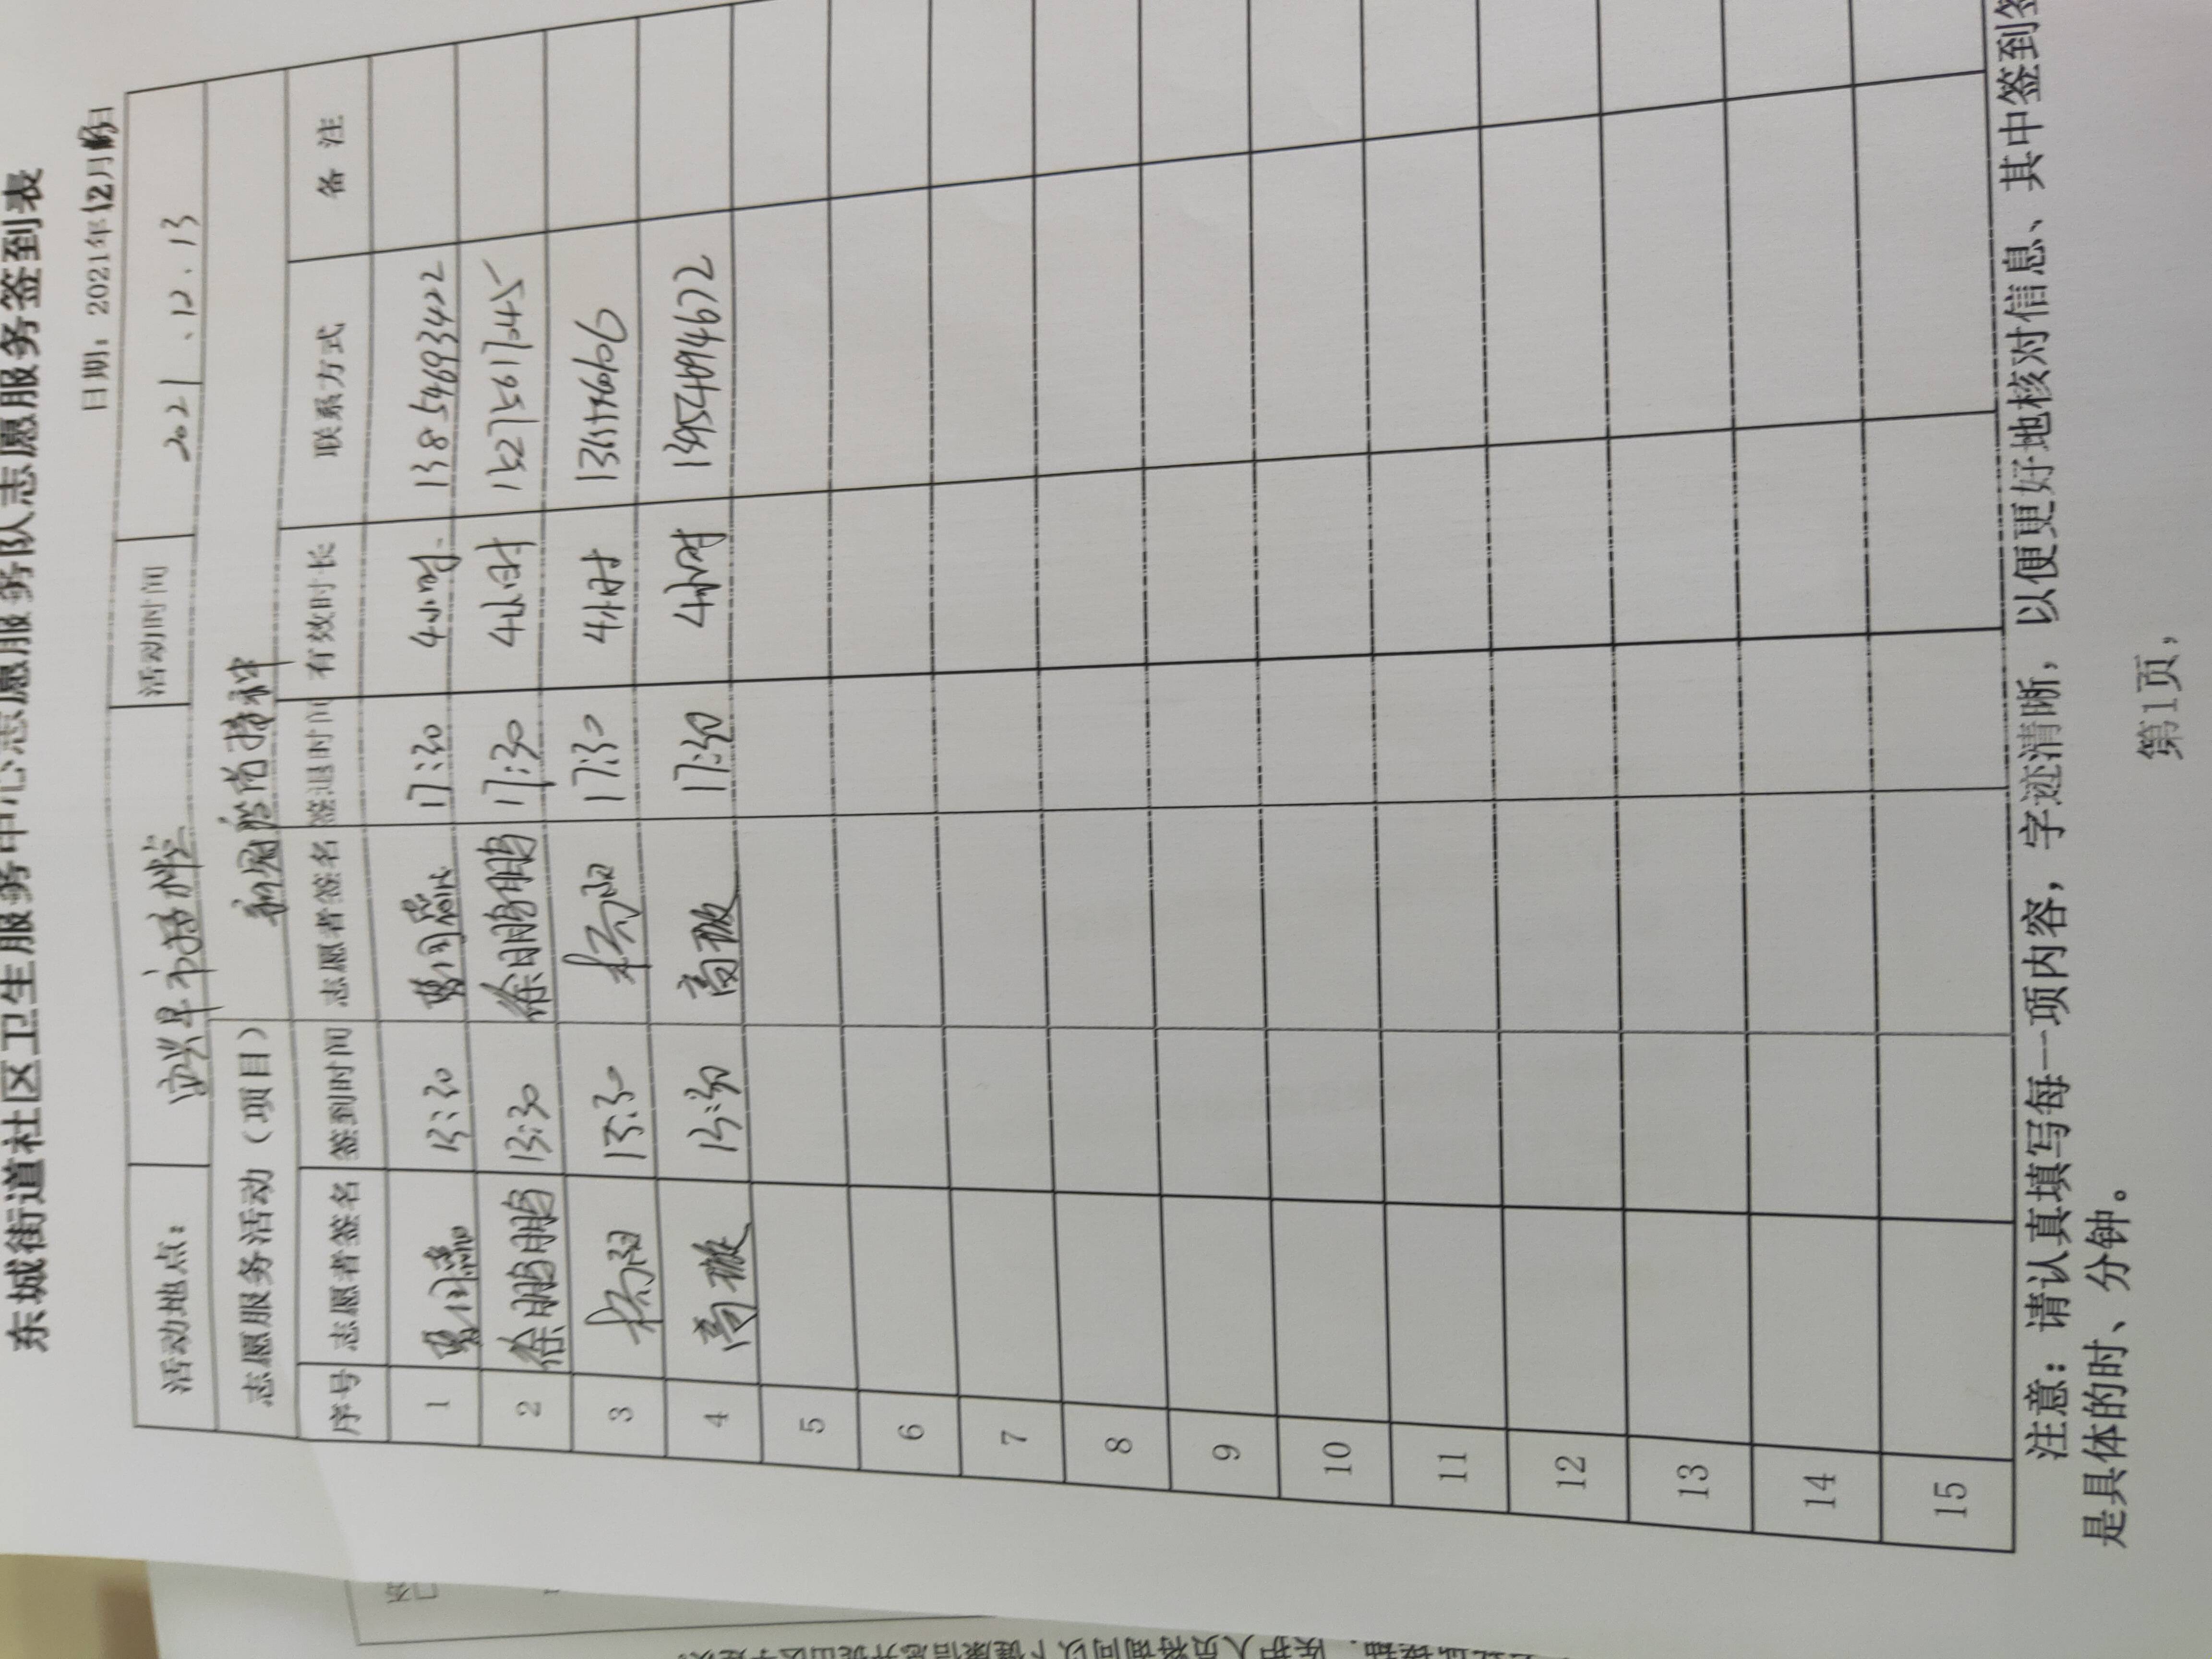 东城街道社区卫生服务中心志愿服务队志愿服务签到表
日期：2021年12月 日
活动地点： 活动时间 2021.12.13
志愿服务活动（项目） 新冠疫苗接种
序号 志愿者签名 签到时间 志愿者签名 签退时间 有效时长 联系方式 备 注
1 13:30 17:30 4小时 13854693422
2 徐朋鹏 13:30 徐朋鹏 17:30 4小时
3 杨阳 13:30 杨阳 17:30 4小时
4 高璇 13:30 高璇 17:30 4小时 13954694672
5
6
7
8
9
10
11
12
13
14
15
注意：请认真填写每一项内容，字迹清晰，以便更好地核对信息、其中签到签
是具体的时、分钟。
第1页，